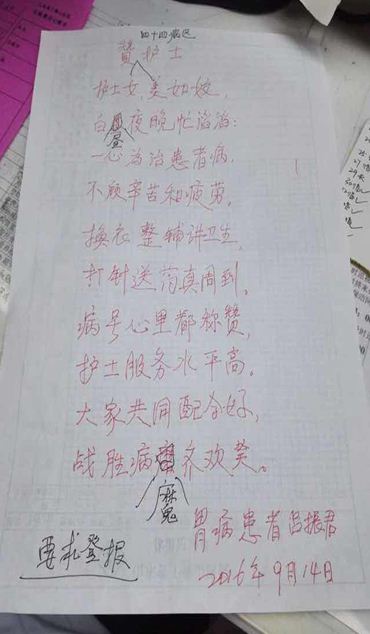 四十四病区
赞护士
护士女,美如姣,
白昼夜晚忙滔滔:
一心为治患者病,
不顾辛苦和疲劳。
换衣整铺讲卫生,
打针送药真周到。
病号心里都称赞,
护士服务水平高。
大家共同配合好,
战胜病魔齐欢笑。
胃病患者吕振君
要求登报
2016年9月14日